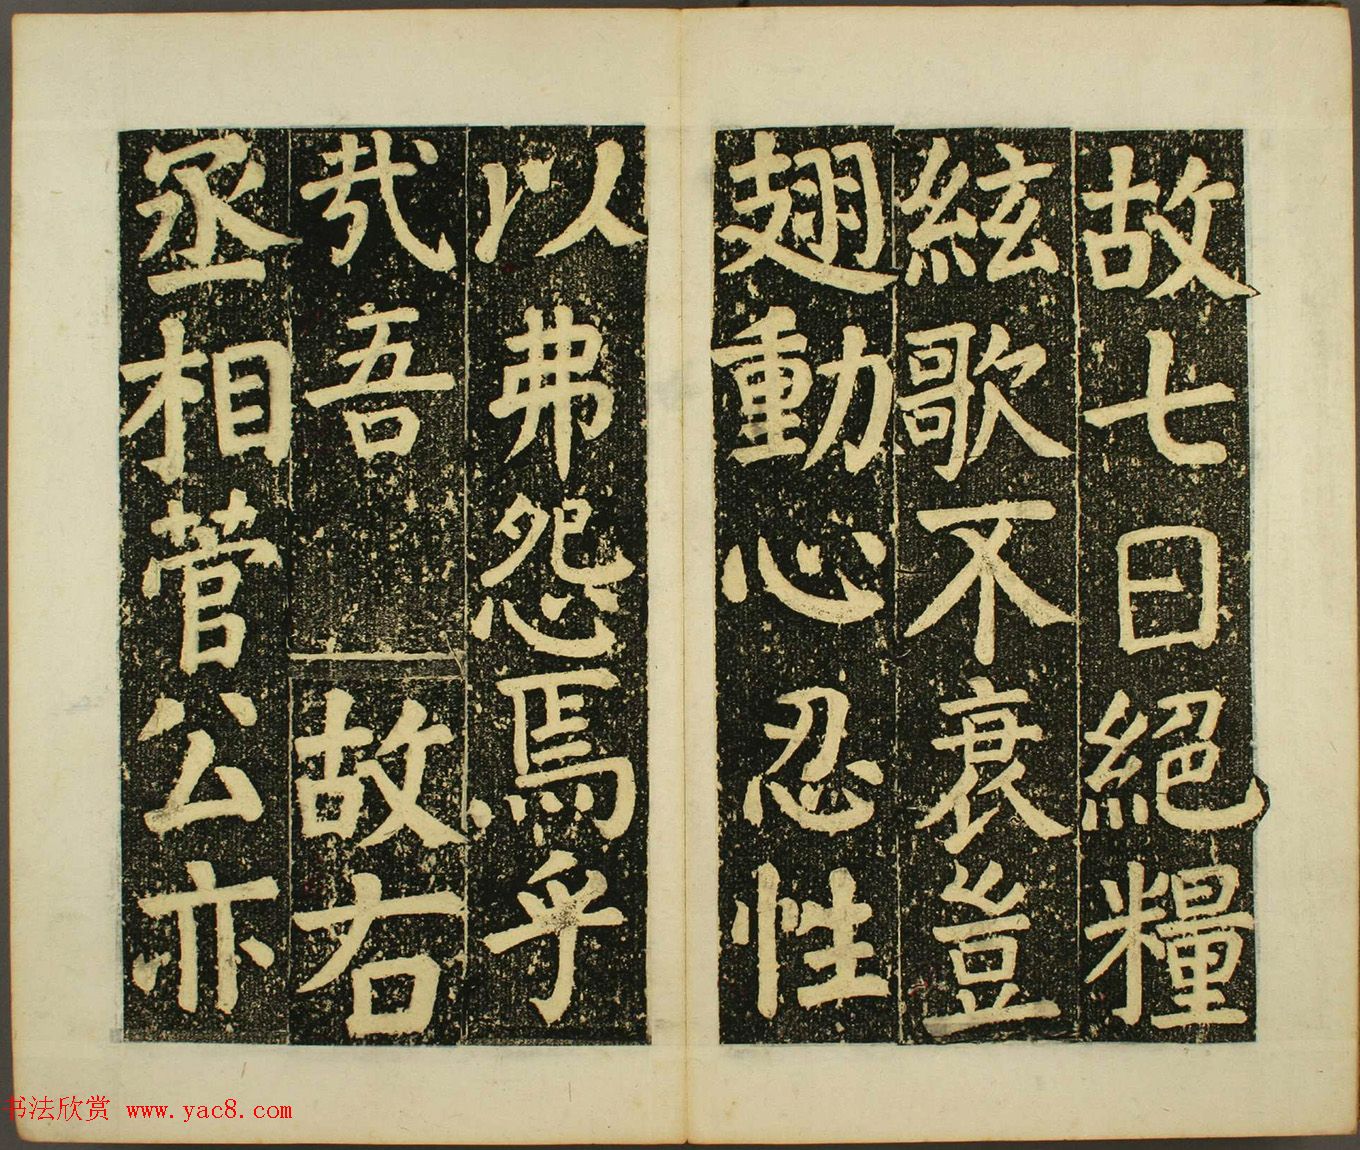 故七日絕糧
絃歌不衰豈
翅動心忍性
以弗怨焉乎
哉吾故右
丞相菅公亦
书法欣赏 www.yac8.com